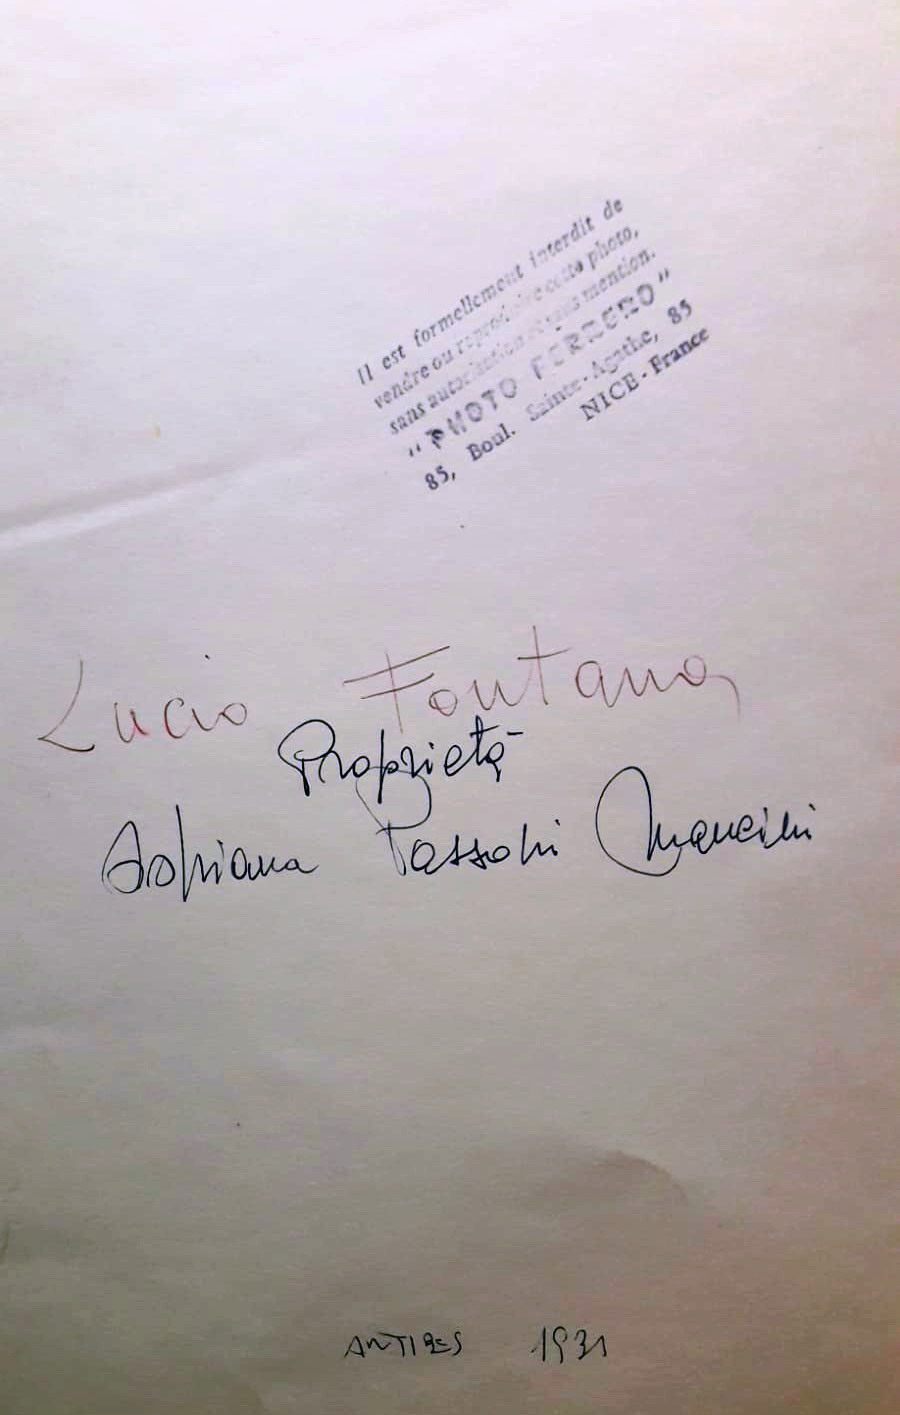 Il est formellement interdit de
vendre ou reproduire cette photo,
sans autorisation et sans mention.
"PHOTO FERRERO"
85, Boul. Sainte-Agathe, 85
NICE - France
Lucio Fontana
Proprietà
Adriana Passoni Mancini
ANTIBES 1931